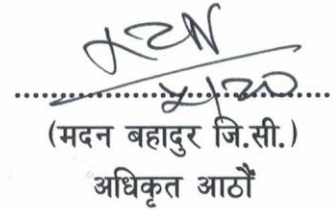 (मदन बहादुर जि.सी.)
अधिकृत आठौं